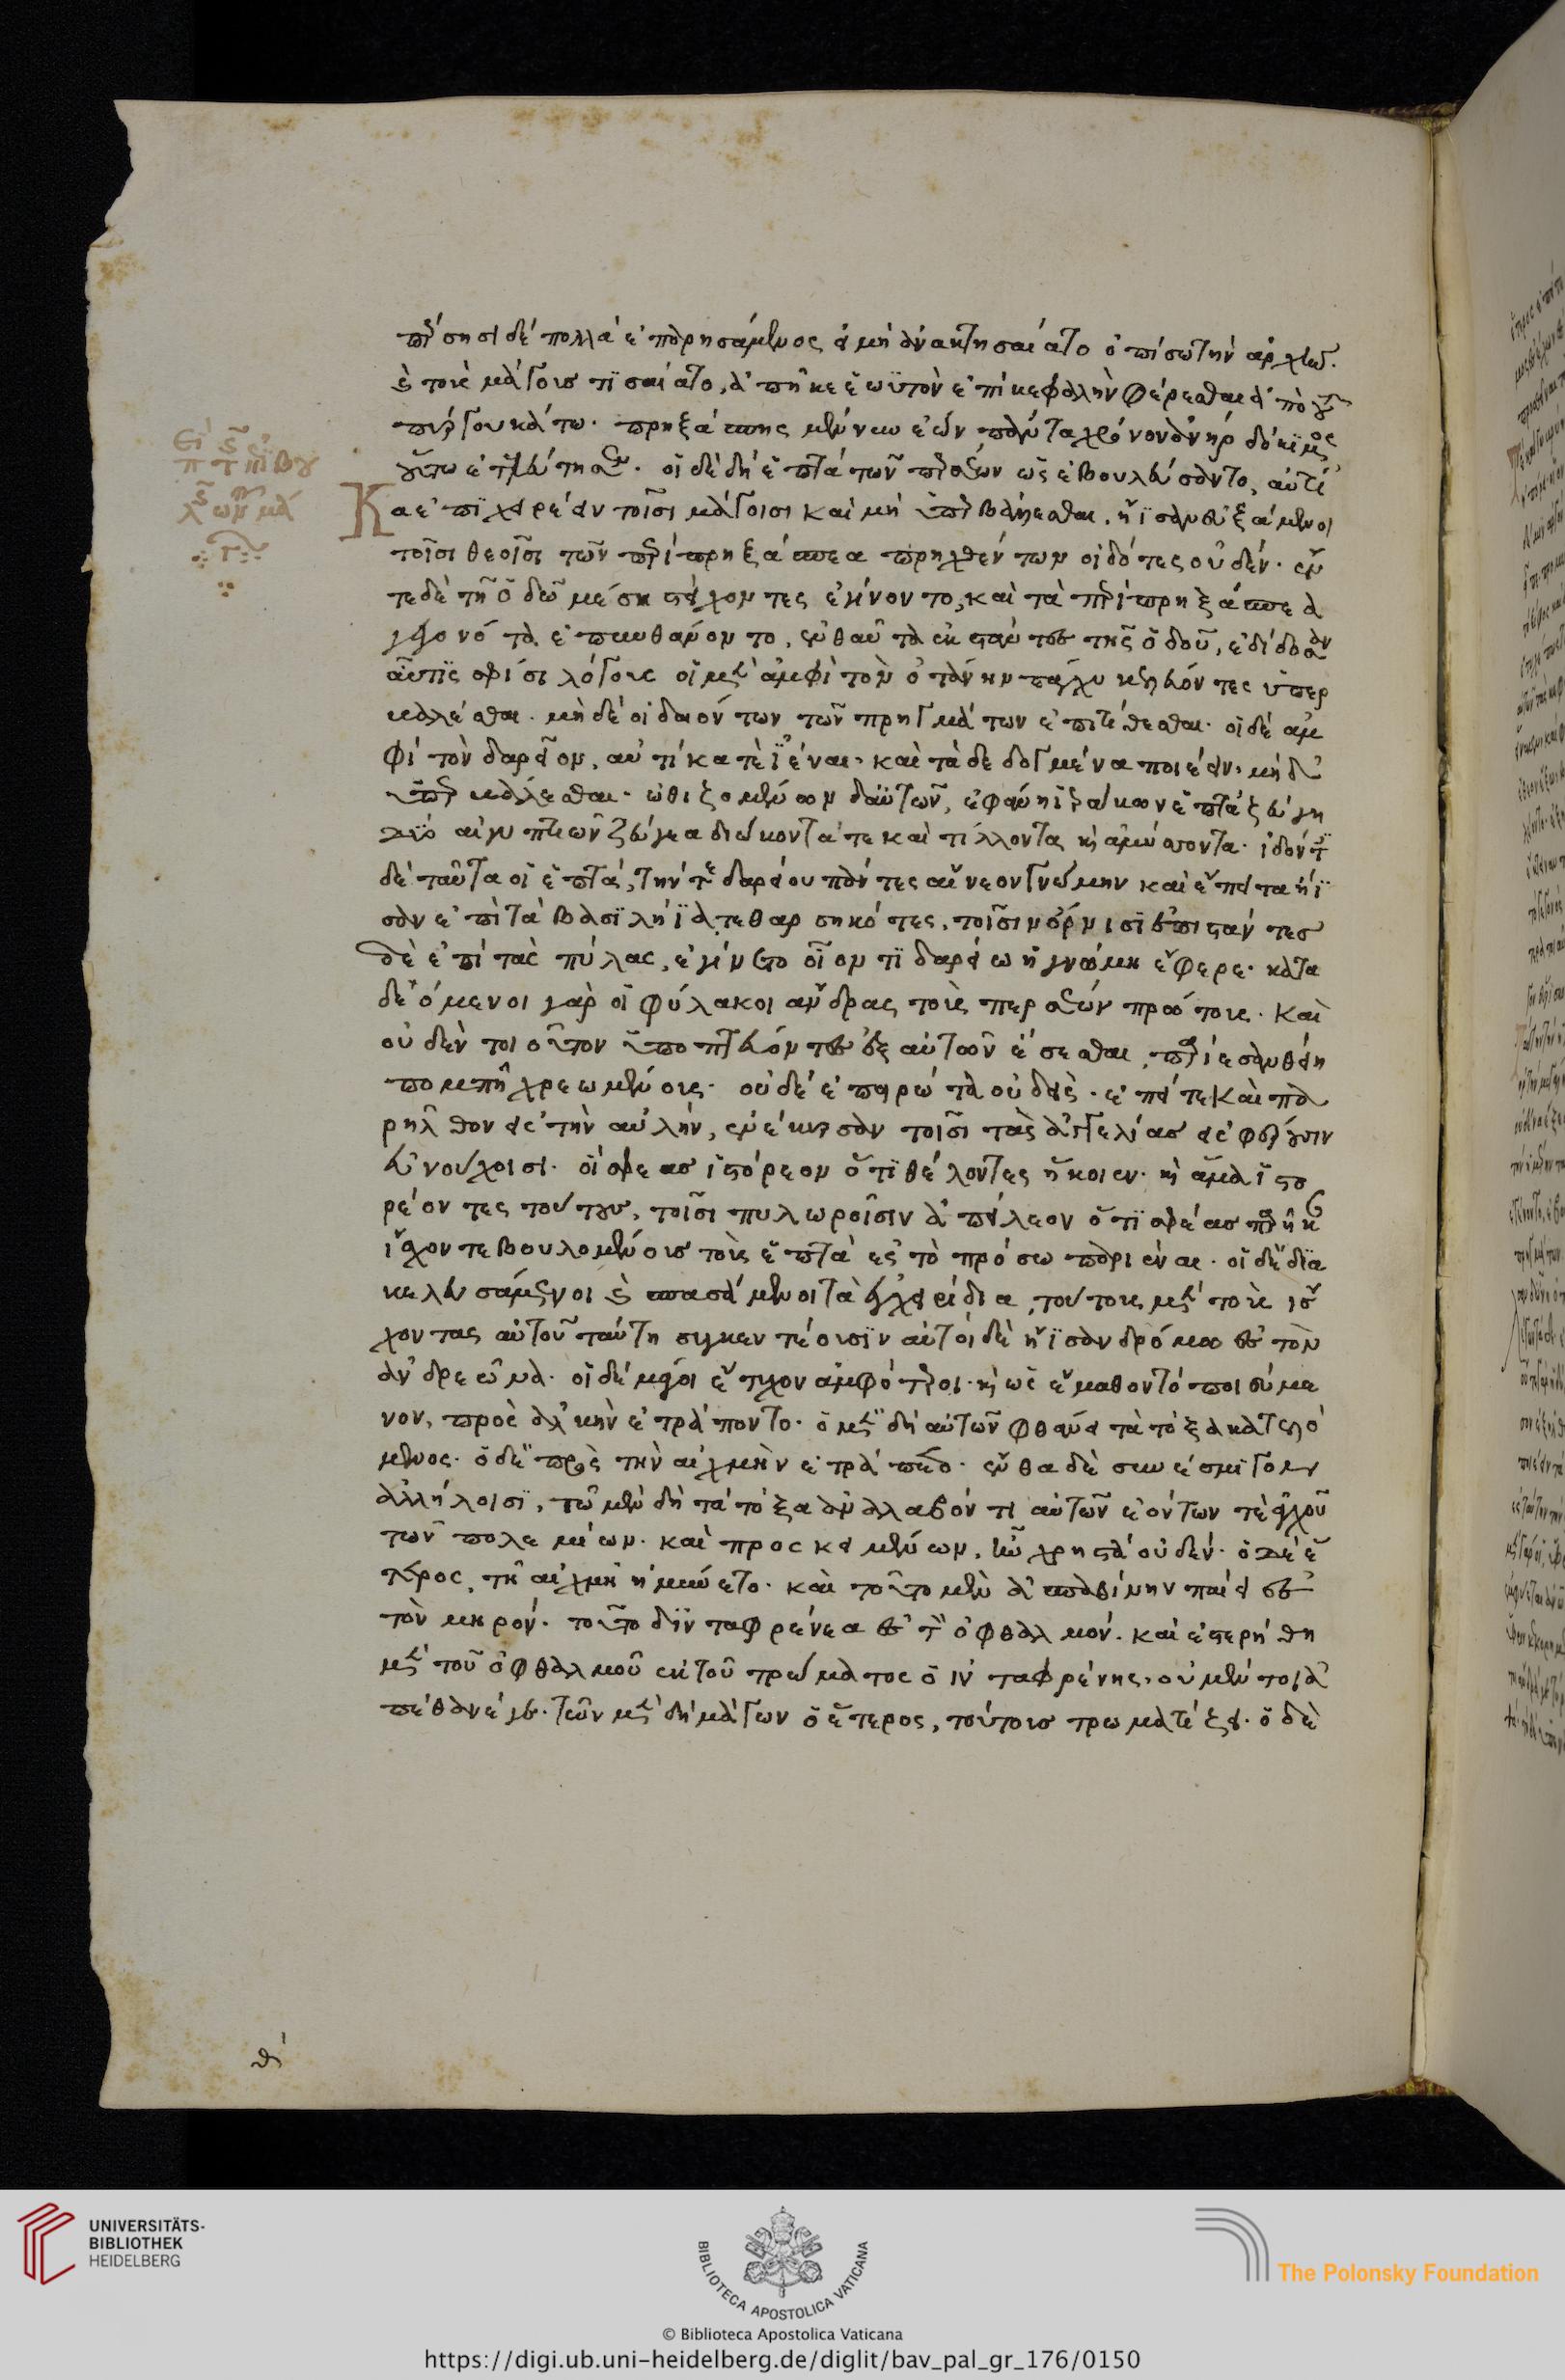 πέρσησι δὲ πολλὰ ἐπαρησάμενος εἰ μὴ ἀνακτησαίατο ὀπίσω τὴν ἀρχὴν.
καὶ τοὺς μάγους τϊσαίατο, ἀπῆκε ἑωϋτὸν ἐπὶ κεφαλὴν φέρεσθαι ἀπὸ τοῦ
πύργου κάτω. πρηξάσπης μέν νυν ἐὼν πάντα χρόνον ἀνὴρ δόκϊμος
οὕτω ἐτελεύτησεν. οἱ δὲ δὴ ἑπτὰ τῶν περσέων ὡς ἐβουλεύσαντο, αὐτί
Κα ἐπϊχειρέειν τοῖσι μάγοισι καὶ μὴ ὑπερβάλλεσθαι. ἤϊσαν εὐξάμενοι
τοῖσι θεοῖσι τῶν περὶ πρηξάσπεα πρηχθέντων εἰδότες οὐδέν. ἐν
τε δὲ τῆ ὁδῶ μέση στείχοντες ἐγίνοντο, καὶ τὰ περὶ πρηξάσπεα
γεγονότα ἐπυνθάνοντο, ἐνθαῦτα ἐκστάντες τῆς ὁδοῦ, ἐδίδοσαν
αὖτϊς σφίσι λόγους οἱ μὲν ἀμφὶ τὸν ὀτάνην πάγχυ κελεύοντες ὑπερ
βαλέσθαι. μηδὲ οἰδαιόντων τῶν πρηγμάτων ἐπιτίθεσθαι. οἱ δὲ ἀμ
φὶ τὸν δαρεῖον, αὐτίκα τὲ ϊέναι. καὶ τὰ δεδογμένα ποιέειν. μὴ δ'
ὑπερβάλλεσθαι. ὠθιζομένων δ' αὐτῶν, ἐφάνη ϊρήκων ἑπτὰ ζεύγη
δύο αἰγυπτιῶν ζεύγεα διώκοντά τε καὶ τίλλοντα καὶ ἀμύσσοντα. ἰδόντες
δὲ ταῦτα οἱ ἑπτὰ, τήν τε δαρείου πάντες αἴνεον γνώμην καὶ ἔπειτα ἤϊ
σαν ἐπὶ τὰ βασϊλήϊα τεθαρσηκότες, τοῖσιν ὄρνισϊ ἐπιστάντες
δὲ ἐπὶ τὰς πύλας, ἐγίνετο οἷον τϊ δαρείω ἡ γνώμη ἔφερε. κατα
δεόμενοι γὰρ οἱ φύλακοι ἄνδρας τοὺς περσέων πρώτους. καὶ
οὐδὲν τοιοῦτον ὑποπτεύοντες ἐξ αὐτῶν ἔσεσθαι, περιίεσαν θείη
πομπῆ χρεωμένους. οὐδὲ ἐπειρώτα οὐδείς. ἐπεί τε καὶ πα
ρῆλθον εἰς τὴν αὐλὴν, ἐνέκυρσαν τοῖσι τὰς ἀγγελίας εἰσφέρουσιν
εὐνούχοισι. οἵ σφεας ἱστόρεον ὅ τϊ θέλοντες ἥκοιεν. καὶ ἅμα ἱστο
ρέοντες τούτους, τοῖσι πυλωροῖσιν ἀπείλεον ὅ τϊ σφέας παρῆκαν
ἴσχον τε βουλομένους τοὺς ἑπτὰ ἐς τὸ πρόσω παριέναι. οἱ δὲ δϊα
κελευσάμενοι καὶ σπασάμενοι τὰ ἐγχειρίδια, τούτους μὲν τοὺς ἴσ
χοντας αὐτοῦ ταύτη συγκεντέουσϊν αὐτοὶ δὲ ἤϊσαν δρόμω ἐς τὸν
ἀνδρεῶνα. οἱ δὲ μάγοι ἔτυχον ἀμφότεροι. καὶ ὡς ἔμαθον τὸ ποιεύμε
νον, πρὸς ἀλκὴν ἐτράποντο. ὁ μὲν δὴ αὐτῶν φθάνει τὰ τόξα κατελό
μενος. ὁ δὲ πρὸς τὴν αἰχμὴν ἐτράπετο. ἔνθα δὲ συνέσμϊσγον
ἀλλήλοισϊ, τῶ μὲν δὴ τὰ τόξα ἀναλαβόντι αὐτῶν ἐόντων τὲ ἀγχοῦ
τῶν πολεμίων. καὶ προσκειμένων, ἦν χρηστὰ οὐδέν. ὁ δὲ ἕ
τερος τῆ αἰχμῆ ἠμύνετο. καὶ τοῦτο μὲν ἀσπαθίνην παίει ἐς
τὸν μηρόν. τοῦτο δ' ϊνταφρένεα ἐς τὸν ὀφθαλμόν. καὶ ἐστερήθη
μὲν τοῦ ὀφθαλμοῦ ἐκ τοῦ τρώματος ὁ ἰνταφρένης. οὐ μέν τοι ἀ
πέθανέ γε. τῶν μὲν δὴ μάγων ὁ ἕτερος, τούτους τρωματίζει. ὁ δὲ
θ'
UNIVERSITÄTS-
BIBLIOTHEK
HEIDELBERG
BIBLIOTECA APOSTOLICA VATICANA
The Polonsky Foundation
© Biblioteca Apostolica Vaticana
https://digi.ub.uni-heidelberg.de/diglit/bav_pal_gr_176/0150